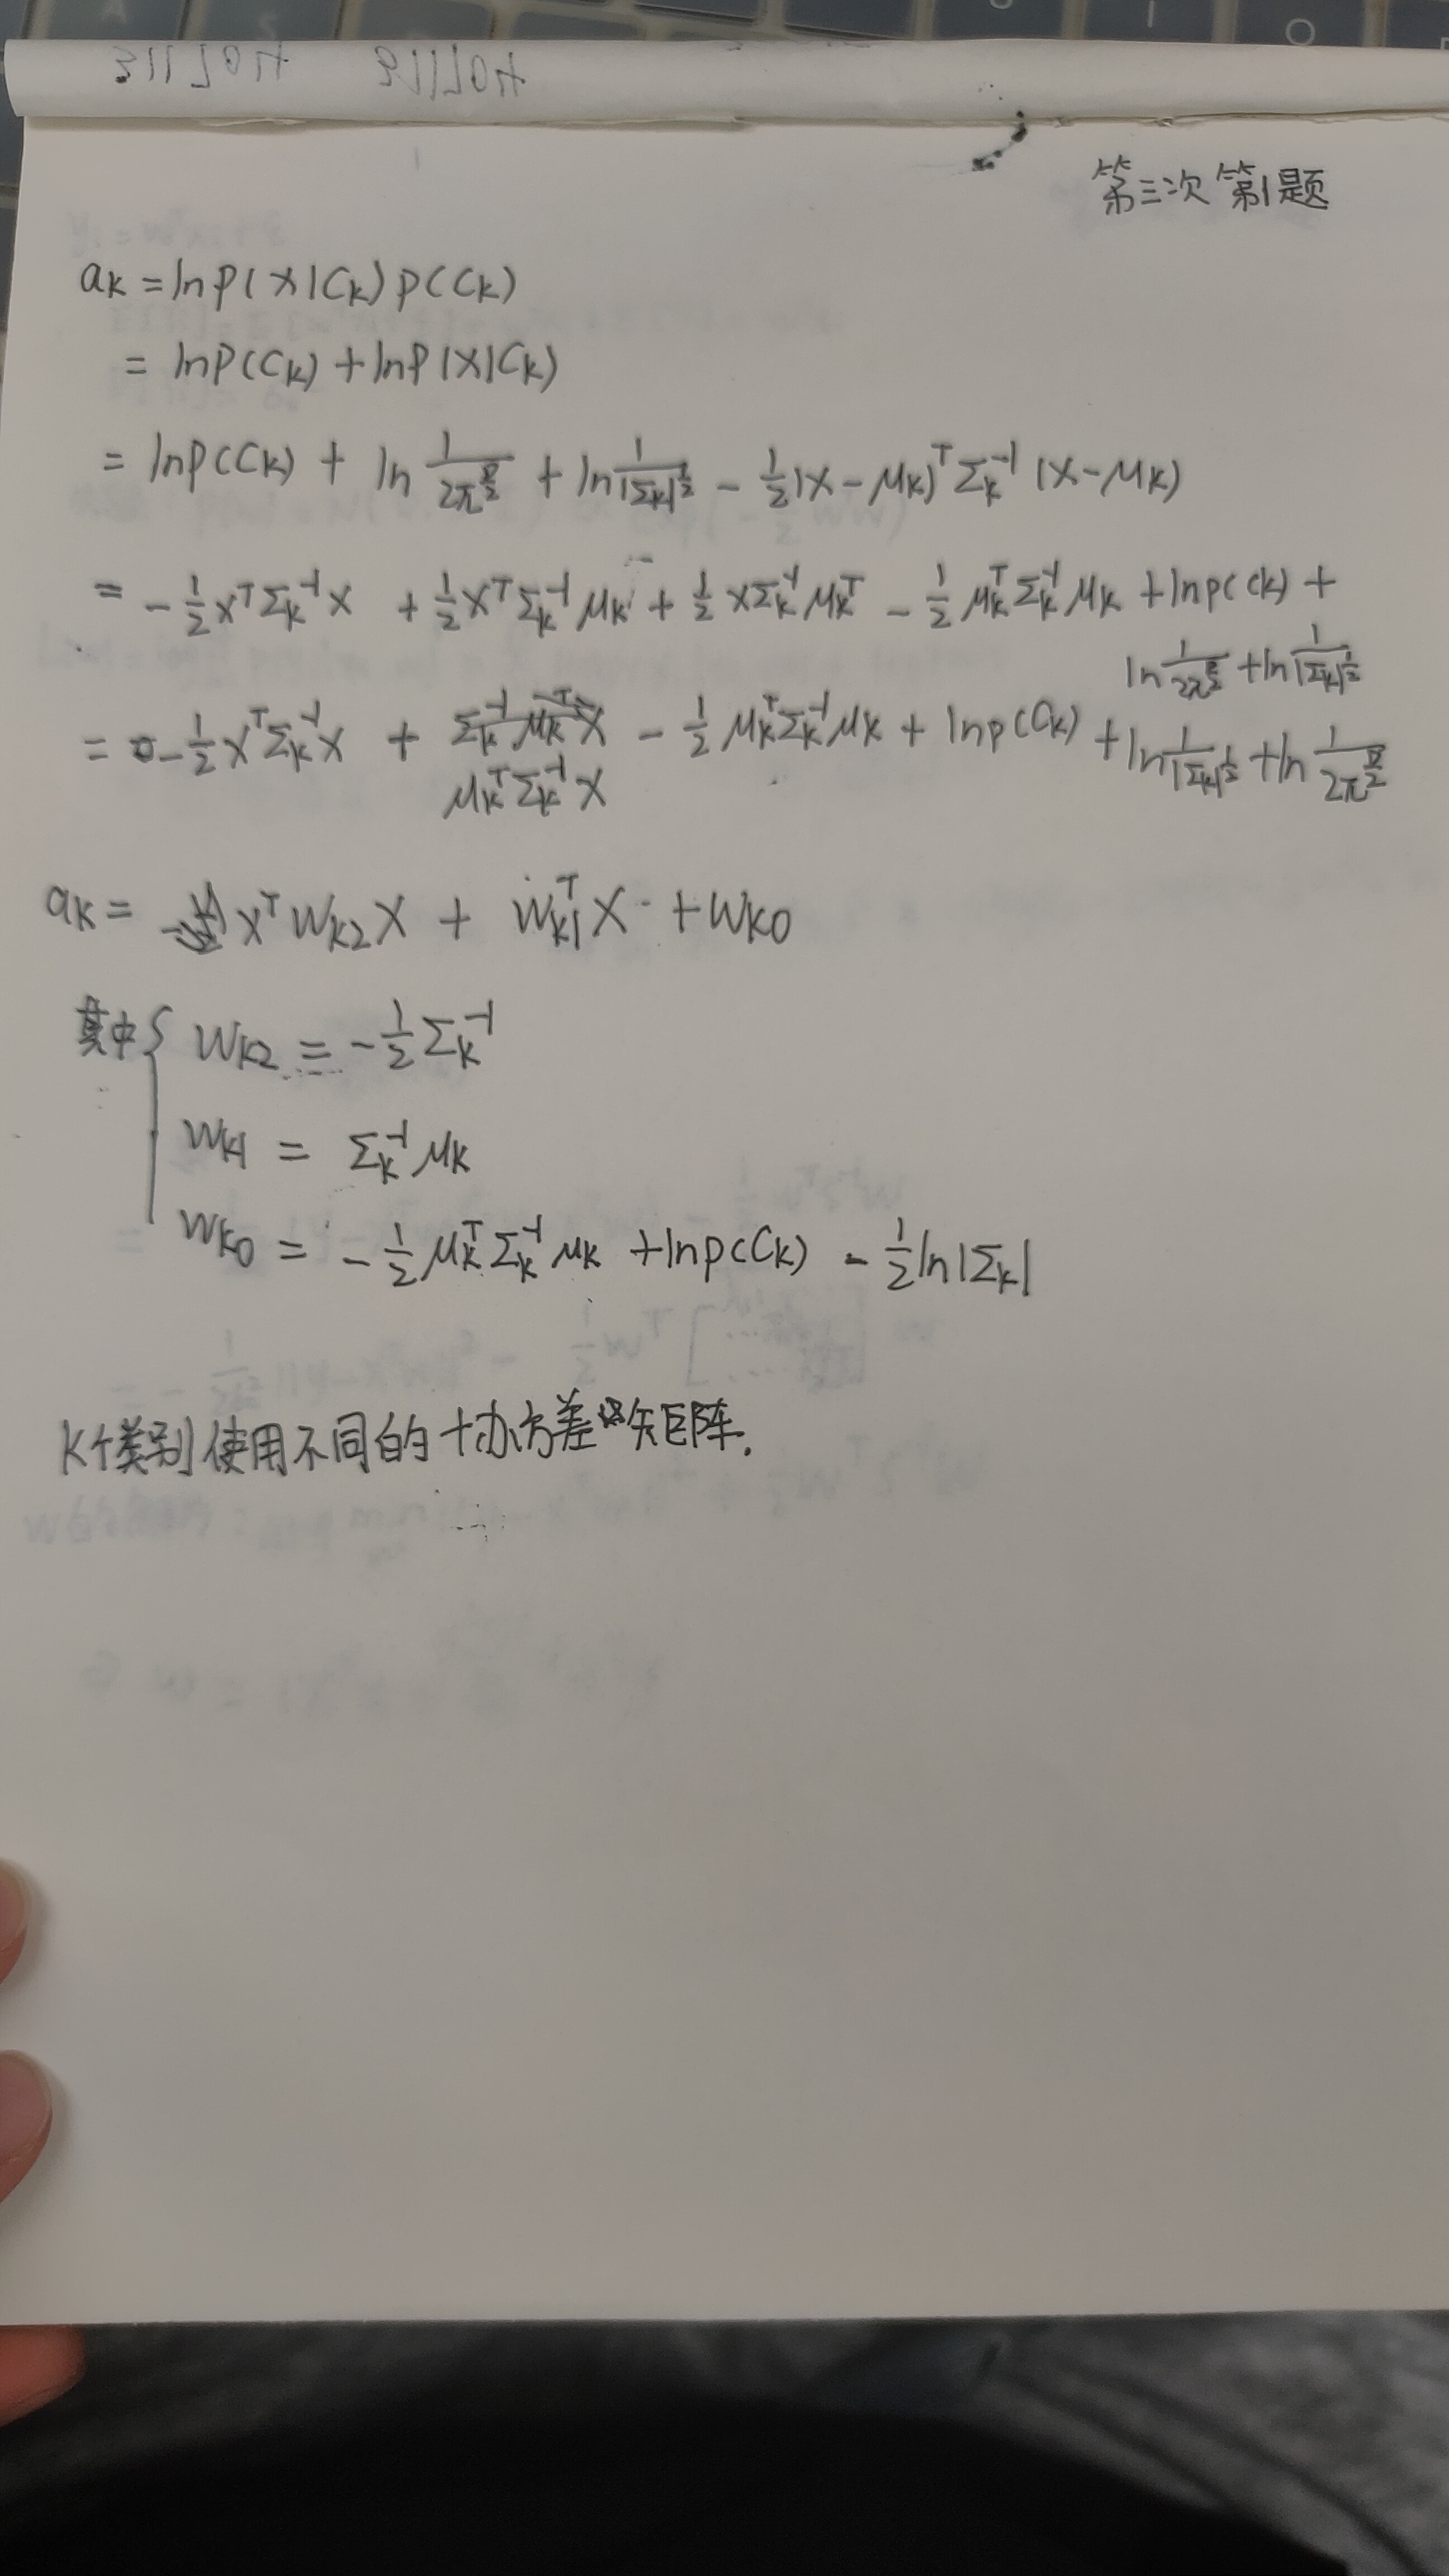 第三次 第1题
a_k = ln p(x|C_k) p(C_k)
= ln p(C_k) + ln p(x|C_k)
= ln p(C_k) + ln \frac{1}{2π^{\frac{D}{2}}} + ln \frac{1}{|Σ_k|^{\frac{1}{2}}} - \frac{1}{2}(x-μ_k)^T Σ_k^{-1} (x-μ_k)
= -\frac{1}{2} x^T Σ_k^{-1} x + \frac{1}{2} x^T Σ_k^{-1} μ_k + \frac{1}{2} x Σ_k^{-1} μ_k^T - \frac{1}{2} μ_k^T Σ_k^{-1} μ_k + ln p(C_k) +
ln \frac{1}{2π^{\frac{D}{2}}} + ln \frac{1}{|Σ_k|^{\frac{1}{2}}}
= -\frac{1}{2} x^T Σ_k^{-1} x + μ_k^T Σ_k^{-1} x - \frac{1}{2} μ_k^T Σ_k^{-1} μ_k + ln p(C_k) + ln \frac{1}{|Σ_k|^{\frac{1}{2}}} + ln \frac{1}{2π^{\frac{D}{2}}}
a_k = x^T W_{k2} x + W_{k1}^T x + W_{k0}
其中{ W_{k2} = -\frac{1}{2} Σ_k^{-1}
W_{k1} = Σ_k^{-1} μ_k
W_{k0} = -\frac{1}{2} μ_k^T Σ_k^{-1} μ_k + ln p(C_k) - \frac{1}{2} ln|Σ_k|
K个类别使用不同的协方差矩阵.